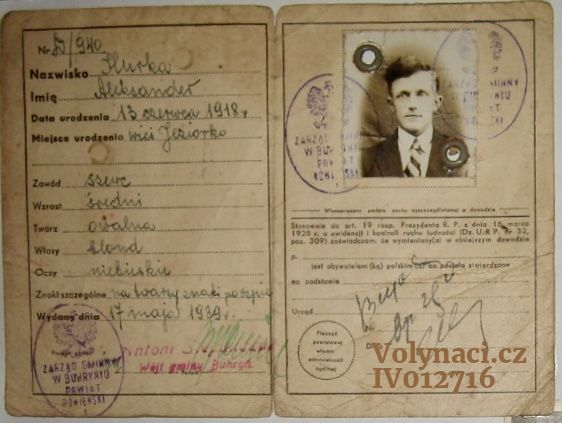 Nr. D/940
Nazwisko Slurka
Imię Aleksander
Data urodzenia 13 czerwca 1918 r
Miejsce urodzenia wieś Jeziorko
Zawód szewc
Wzrost średni
Twarz owalna
Włosy blond
Oczy niebieskie
Znaki szczególne na twarzy znaki po ospie
Wydany dnia 17 maja 1939 r.
Antoni
Wójt gminy Buhryń
ZARZĄD GMINNY
W BUHRYNIU
POWIAT
ZARZĄD GMINNY
W BUHRYNIU
POWIAT
ZARZĄD GMINNY
POWIAT
Własnoręczny podpis osoby wyszczególnionej w dowodzie
Stosownie do art. 19 rozp. Prezydenta R. P. z dnia 16 marca
1928 r. o ewidencji i kontroli ruchu ludności (Dz. U. R. P. Nr 32,
poz. 309) zaświadczam, że wymieniony(a) w niniejszym dowodzie
jest obywatelem (ką) polskim(ą) co zostało stwierdzone
na podstawie
Urząd
Nr.
Pieczęć
powiatowej
władzy
administracji
ogólnej
Volynaci.cz
IV012716